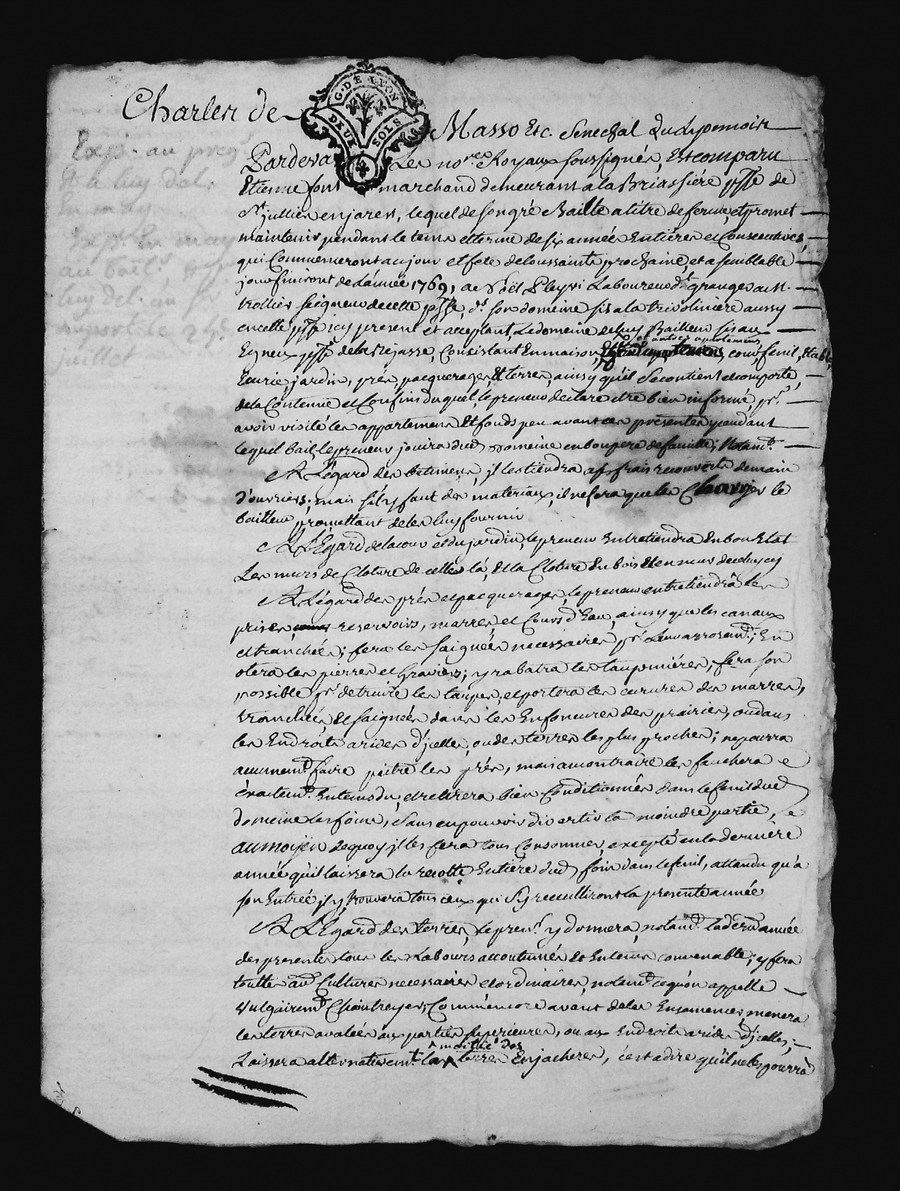 Charles de Masso Etc. Senechal Du Lyonnois
G. DE LYON
DEUX SOLS
Pardevant Les no.res Royaux soussignés, Est comparu
Etienne font marchand demeurant a la Briassiére psse de
St. jullien en jarest, lequel de son gré Baille a titre de ferme, et promet
maintenir pendant le tems et terme de six année Entiéres et Consecutives,
qui Commenceront au jour et fete de toussaints prochaine, et a semblable
jour finiront de L'année 1769, a Laboureur dt granger au st.
trollier seigneur de cette psse, dt. son domeine sis a la aussy
en cette psse icy present et acceptant, Le domeine dudt Bailleur sis au
psse de la Consistant En maison, et autres apartemens, cour, fenil, Etable,
Ecurie, jardin, prés, pacquerages, Et terres ainsy qu'il Se contient et comporte,
de la Contenue et Confins duquel le preneur declare etre bien informé, pr.
avoir visité les appartemens Et fonds peu avant ces presentes, pendant
lequel bail le preneur jouira dud. Domeine en bon pere de famille; Notamt.
A L'égard des batimens, jl les tiendra a ses frais recouverts de main
d'ouvriers, mais s'il y faut des materiaux, il ne sera que les Charrier le
bailleur promettant de les luy fournir
A L'Egard de la cour et du jardin, le preneur Entretiendra En bon Etat
Les murs de Cloture de celle la, Et la Cloture En bois Et en murs de celuy cy
A L'égard des prés et pacquerages, le preneur entretiendra les
prises, reservoirs, marres et Cours d'Eau, ainsy que les canaux
et tranchées; fera les saignées necessaires pr. Leur arrosemt.; En
otera les pierres et Graviers; y rabatra les taupinniéres, fera son
possible pr. detruire les taupes, et portera les curures des marres,
tranchées Et saignées dans les Enfonceures des prairies, ou dans
les Endroits arides d'jcelles, ou des terres les plus proches; ne pourra
aucunemt. faire paitre les prés, mais au contraire les fauchera
Exactemt. En tems du, et retirera bien Conditionnés dans le fenil dud.
domeine les foins, sans en pouvoir divertir la moindre partie,
au moyen de quoy jl les fera tous Consommer, excepté en la derniere
année qu'il laissera la recolte Entiére dud. foin dans le fenil, attendu qu'a
son Entrée jl y trouvera tous ceux qui s'y recuilliront la presente année
A L'Egard des terres, Le pren.r y donnera, notamt. la dern.e année
des presentes tous les Labours accoutumés Et En tems convenable; y fera
touttes aut. Cultures necessaires et ordinaires, notamt. ce qu'on appelle
vulgairemt. Commencera avant de les Ensemencer, menera
les terres avalées aux parties superieures, ou aux Endroits arides d'jcelles;
Laissera alternativemt. la moitié des terres En jacheres, c'est a dire qu'il ne les pourra
Exp. au pren.
Et a luy del.
En may
Exp. En may
au bail.
luy del. un
juillet